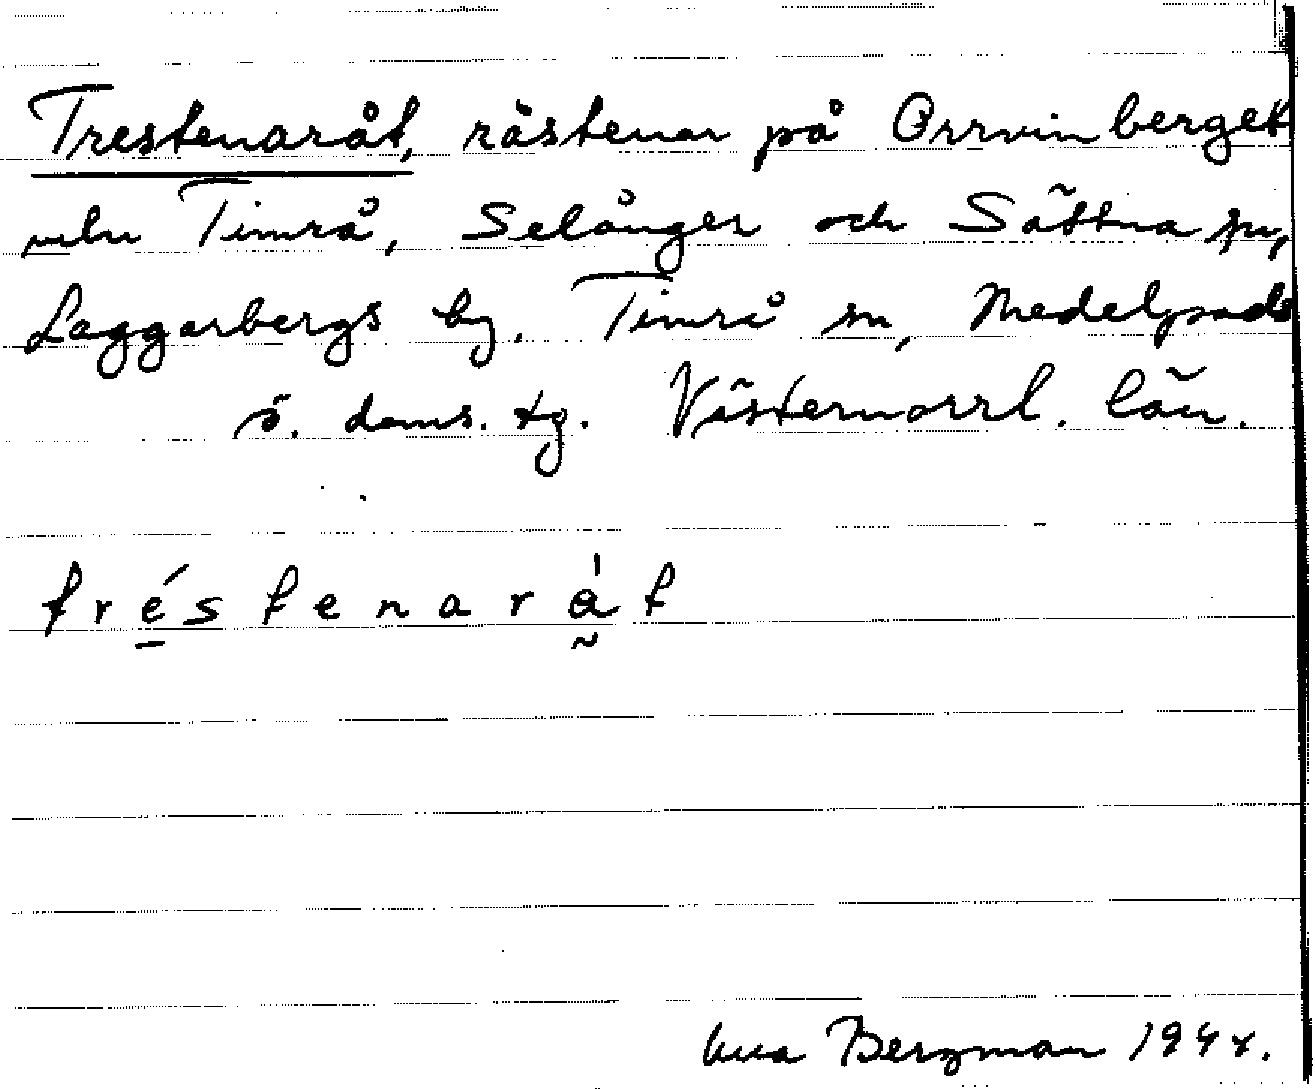 Trestenaråt, råstenar på Orrvinberget
mln Timrå, Selånger och Sättna sn,
Laggarbergs by. Timrå sn, Medelpads
ö. doms. tg. Västernorrl. län.
tréstenaråt
Bergman 194